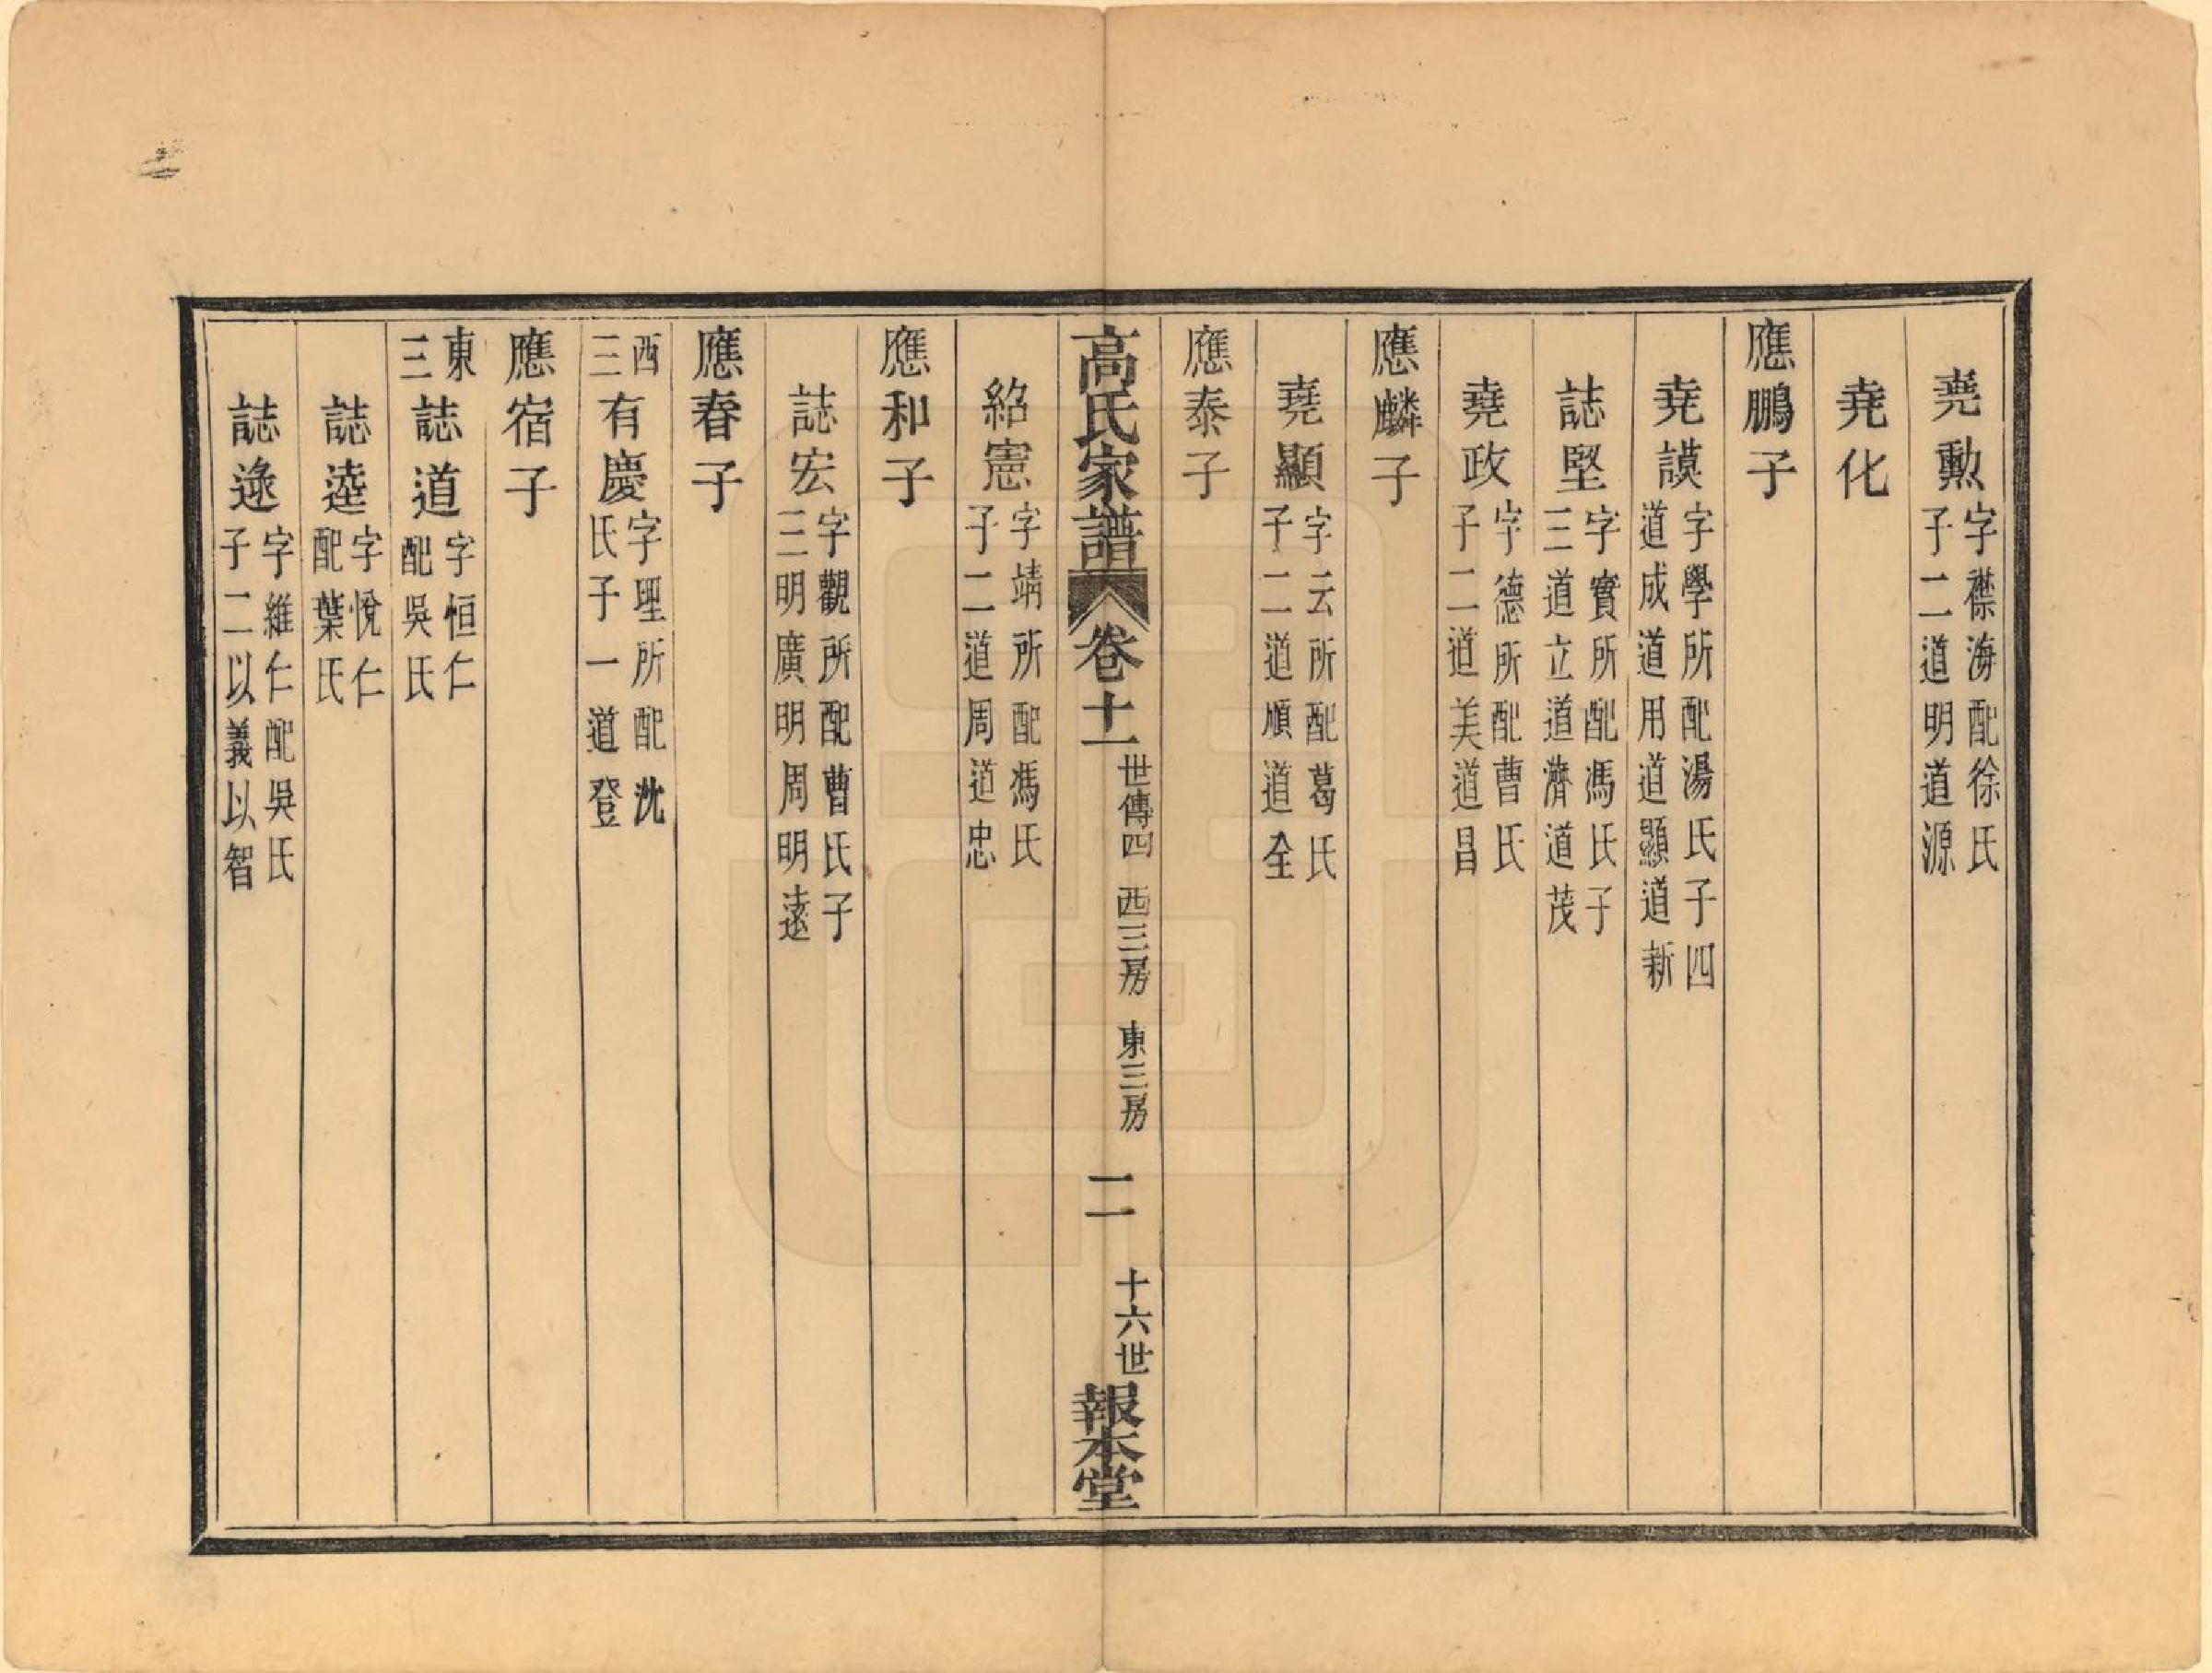 堯勲字襟海配徐氏
子二道明道源
堯化
應鵬子
堯謨字學所配湯氏子四
道成道用道顯道新
誌堅字實所配馮氏子
三道立道濟道茂
堯政字德所配曹氏
子二道美道昌
應麟子
堯顯字云所配葛氏
子二道順道全
應泰子
高氏家譜 卷十一 世傳四 西三房 東三房 二 十六世 報本堂
紹憲字靖所配馮氏
子二道周道忠
應和子
誌宏字觀所配曹氏子
三明廣明周明遠
應春子
西三有慶字聖所配沈
氏子一道登
應宿子
東三誌道字恒仁
配吳氏
誌逵字悅仁
配葉氏
誌逵字維仁配吳氏
子二以義以智